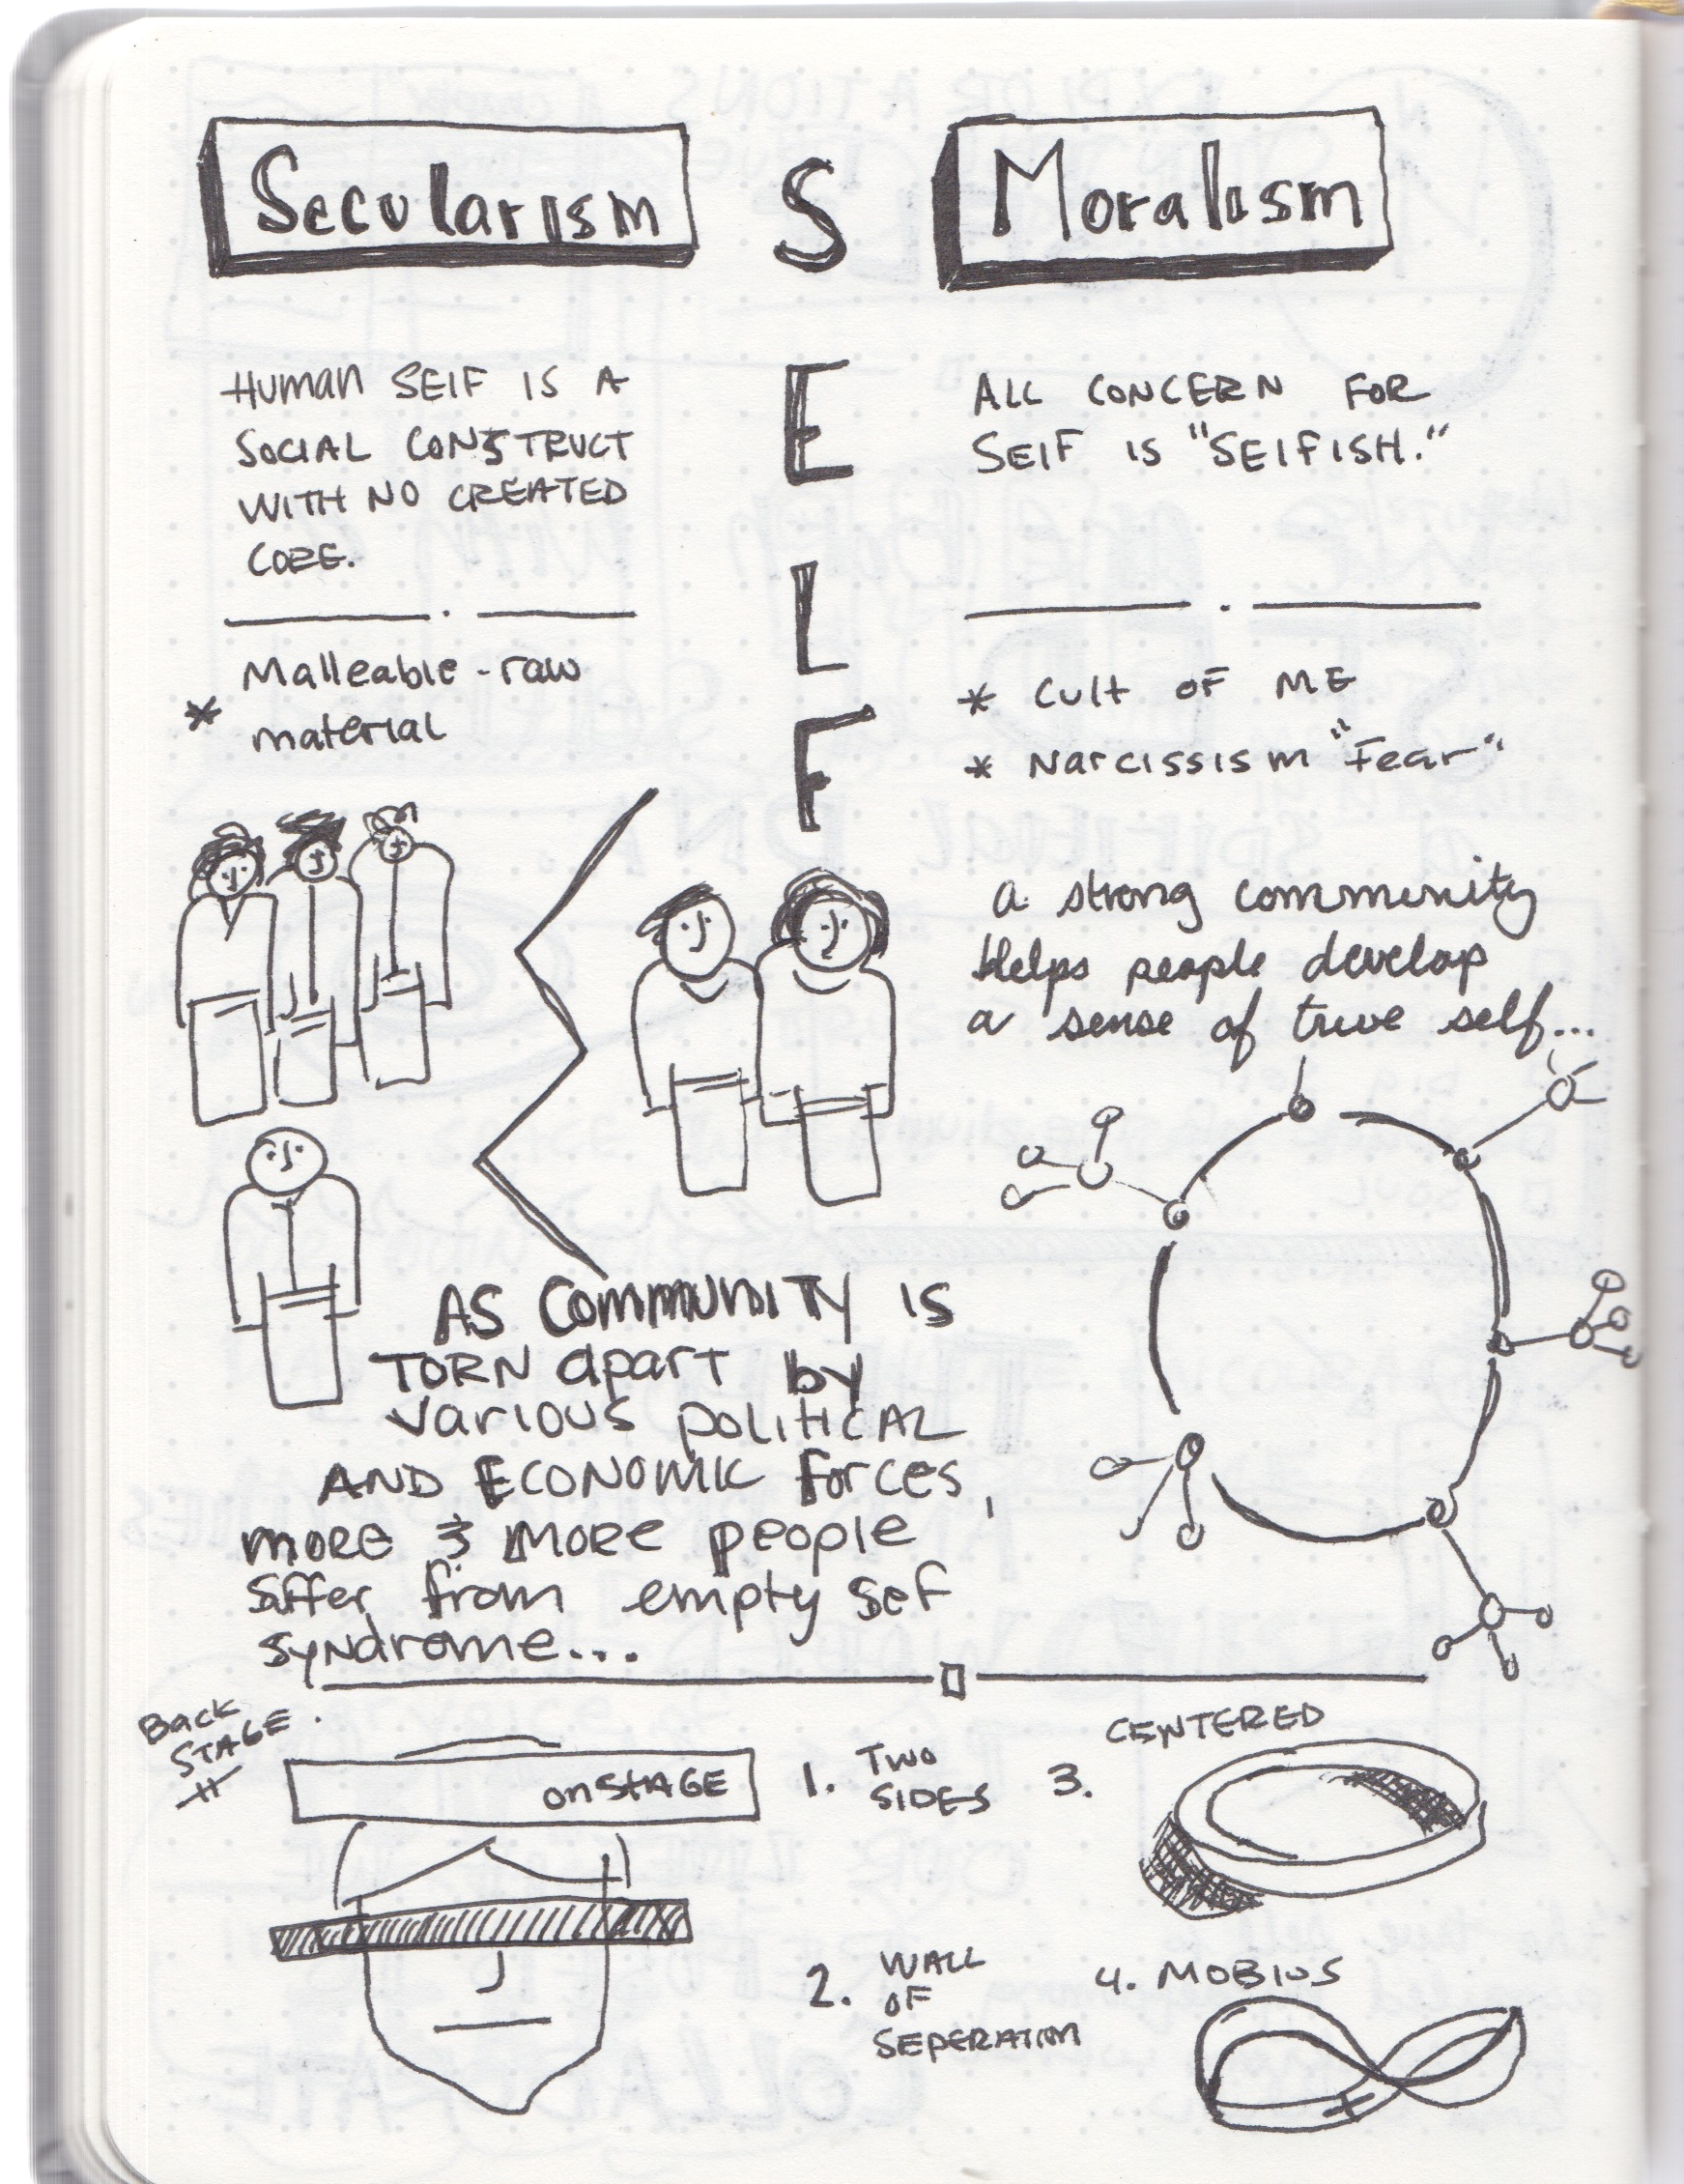 Secularism
S
E
L
F
Moralism
Human SElF IS A
SOCIAL CONSTRUCT
WITH NO CREATED
CORE.
* Malleable - raw
material
ALL CONCERN FOR
SElF IS "SElFISH."
* Cult OF ME
* Narcissism "Fear"
a strong community
Helps people develop
a sense of true self...
AS COMMUNITY IS
TORN apart by
various political
AND ECONOMIC forces,
more & more people
suffer from empty sef
syndrome...
Back
STAGE
onSTAGE
1. TWO
SIDES
2. WALL
OF
SEPERATION
CENTERED
3.
4. MOBIUS